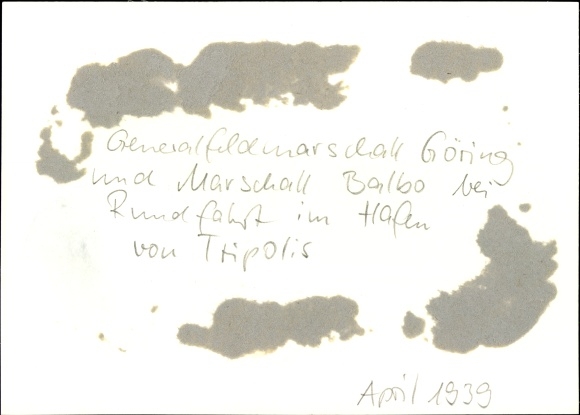 Generalfeldmarschall Göring
und Marschall Balbo bei
Rundfahrt im Hafen
von Tripolis
April 1939